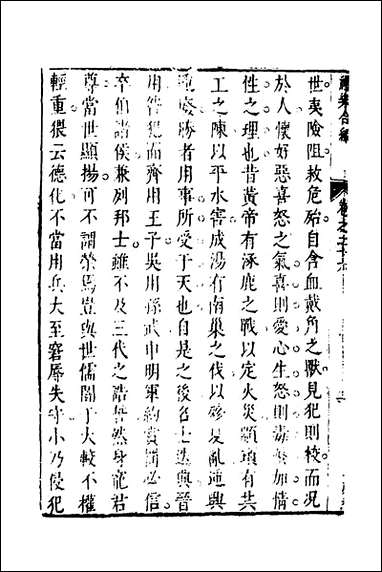 世夷險阻救危殆自含血戴角之獸見犯則校而况
於人懷好惡喜怒之氣喜則愛心生怒則毒螫加情
性之理也昔黃帝有涿鹿之戰以定火災顓頊有共
工之陳以平水害成湯有南巢之伐以殄夏亂遞興
遞廢勝者用事所受于天也自是之後名士迭興晉
用咎犯而齊用王子吳用孫武申明軍約賞罰必信
卒伯諸侯兼列邦士雖不及三代之誥誓然身寵君
尊當世顯揚可不謂榮焉豈與世儒闇于大較不權
輕重猥云德化不當用兵大至窘辱失守小乃侵犯
禮樂合編
卷之二十六